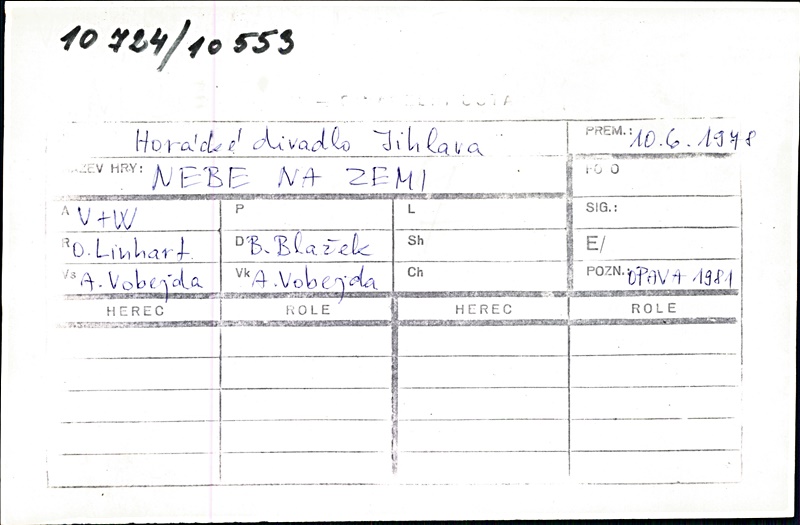 10 724/10 553
Horácké divadlo Jihlava PREM.: 10.6.1978
ZEV HRY: NEBE NA ZEMI
A V+W P L SIG.:
R O. Linhart D B. Blažek Sh E/
Vs A. Vobejda Vk A. Vobejda Ch POZN.: OPAVA 1981
HEREC ROLE HEREC ROLE